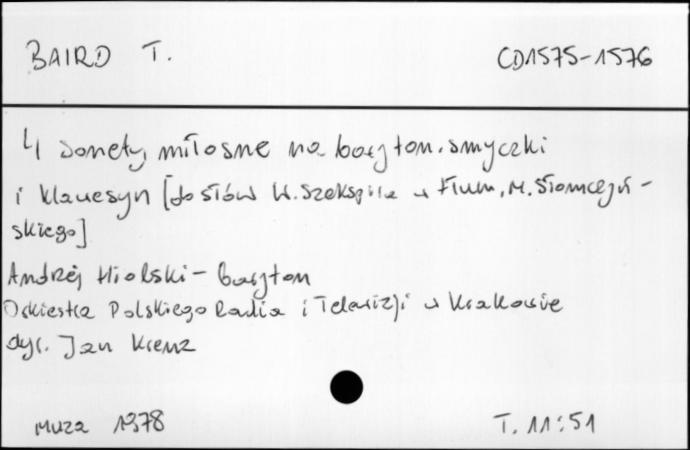 BAIRD T. CD1575-1576
4 sonety miłosne na baryton, smyczki
i klawesyn [do słów W. Szekspira w tłum. M. Słomczyń-
skiego]
Andrzej Hiolski - baryton
Orkiestra Polskiego Radia i Telewizji w Krakowie
dyr. Jan Krenz
Muza 1378 T. 11:51